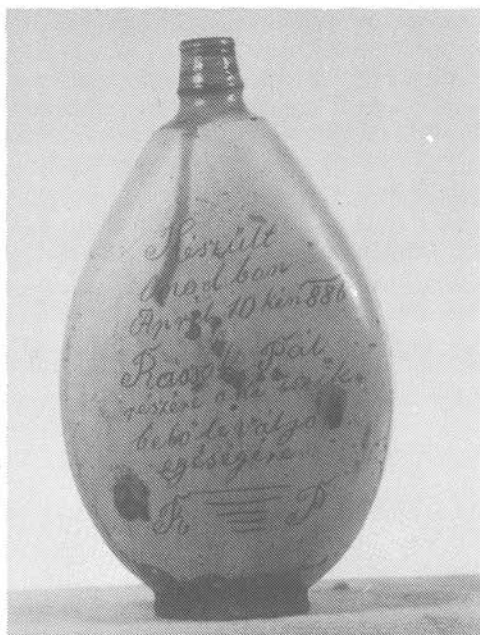 Készült
onod ban
April 10 kén 886
Pál
részére a ki iszik
belő le váljo
egéségére
R P